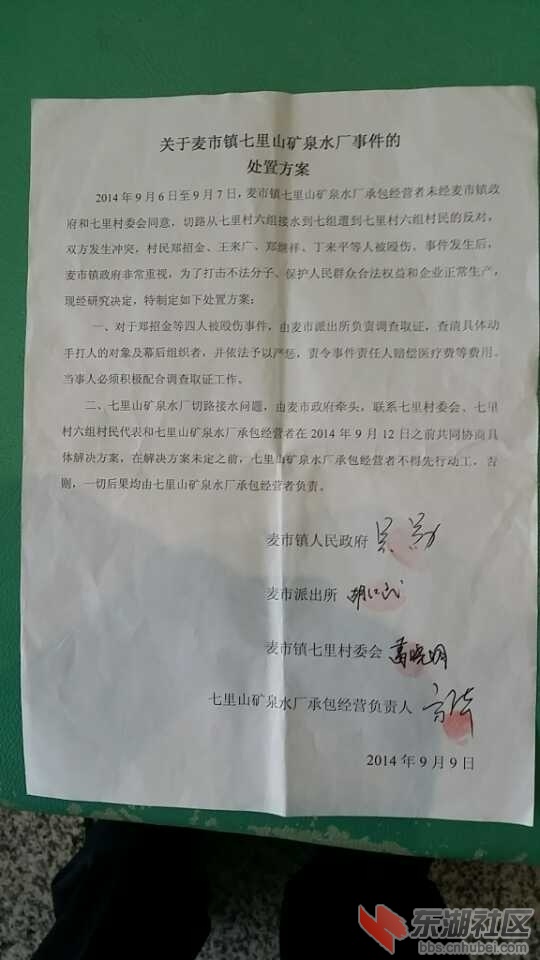 关于麦市镇七里山矿泉水厂事件的
处置方案
2014年9月6日至9月7日，麦市镇七里山矿泉水厂承包经营者未经麦市镇政
府和七里村委会同意，切路从七里村六组接水到七组遭到七里村六组村民的反对，
双方发生冲突，村民郑招金、王来广、郑继祥、丁来平等人被殴伤。事件发生后，
麦市镇政府非常重视，为了打击不法分子、保护人民群众合法权益和企业正常生产，
现经研究决定，特制定如下处置方案：
一、对于郑招金等四人被殴伤事件，由麦市派出所负责调查取证，查清具体动
手打人的对象及幕后组织者，并依法予以严惩，责令事件责任人赔偿医疗费等费用。
当事人必须积极配合调查取证工作。
二、七里山矿泉水厂切路接水问题，由麦市政府牵头，联系七里村委会、七里
村六组村民代表和七里山矿泉水厂承包经营者在2014年9月12日之前共同协商具
体解决方案，在解决方案未定之前，七里山矿泉水厂承包经营者不得先行动工，否
则，一切后果均由七里山矿泉水厂承包经营者负责。
麦市镇人民政府
麦市派出所
麦市镇七里村委会
七里山矿泉水厂承包经营负责人
2014年9月9日
东湖社区
bbs.cnhubei.com